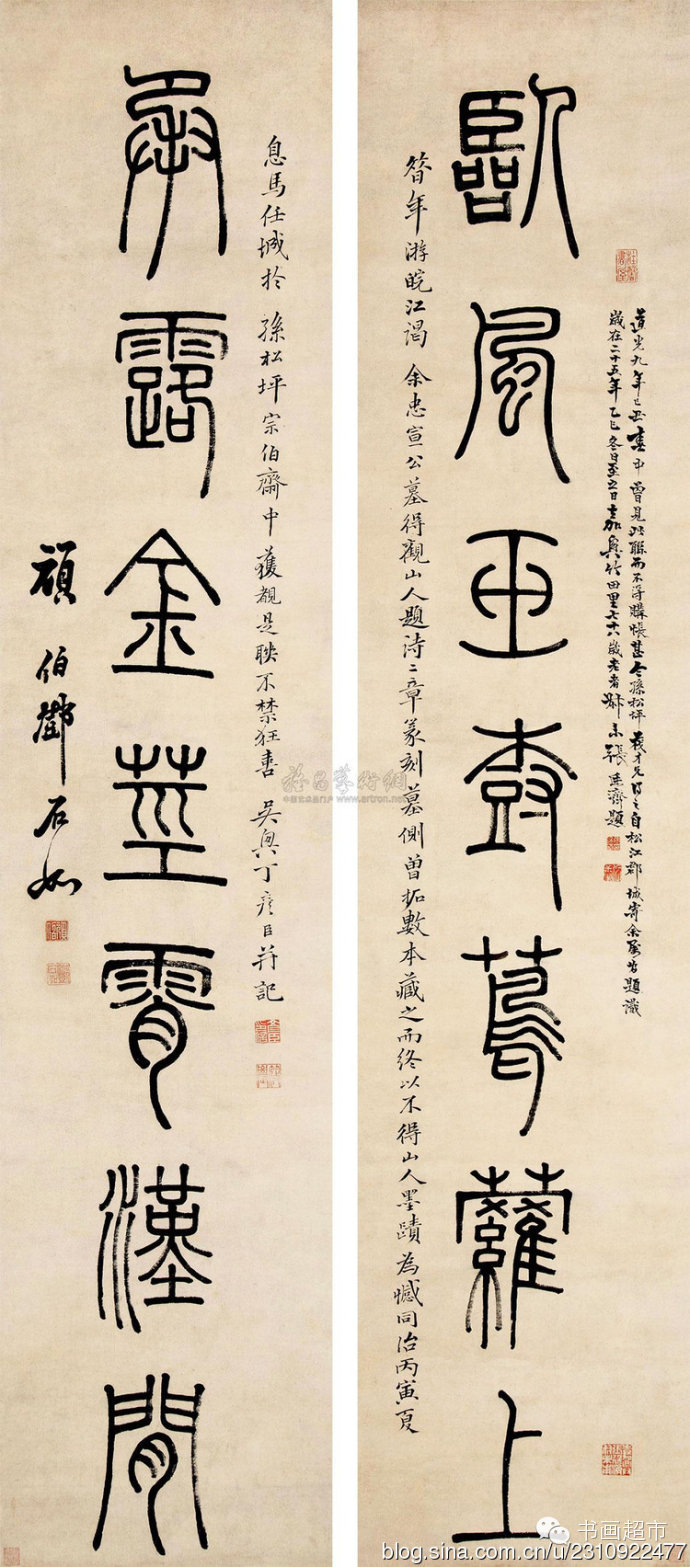 道光九年己丑春中曾見此聯而不得購悵甚今孫松坪茂才兄得之自松江郡城寄余屬為題識
歲在二十五年乙巳冬日至五日嘉興竹田里七十八歲老者叔未張廷濟題
臨風玉樹蔦蘿上
昝年游皖江謁余忠宣公墓得觀山人題詩二章篆刻墓側曾拓數本藏之而終以不得山人墨蹟為憾同治丙寅夏
息馬任城於孫松坪宗伯齋中獲覩是聯不禁狂喜吳興丁彦臣并記
承露金莖霄漢間
頑伯鄧石如
www.artron.net
书画超市
blog.sina.com.cn/u/2310922477